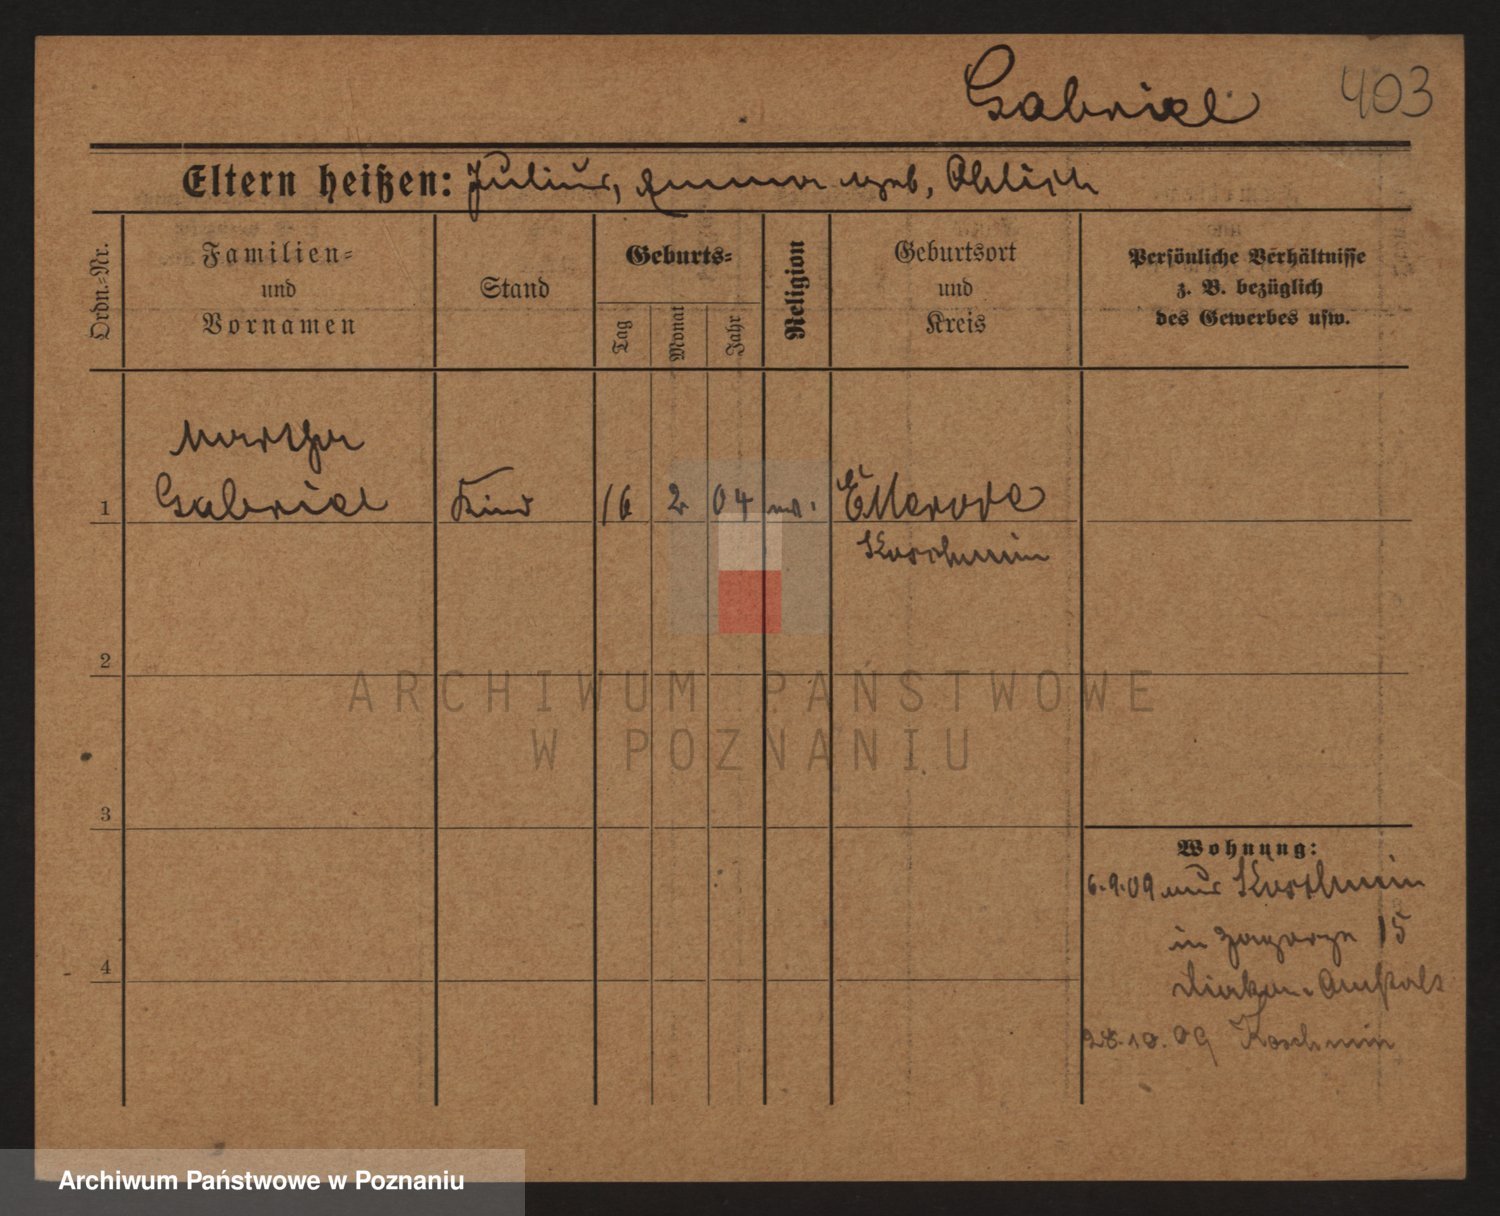 Gabriel 403
Eltern heißen: Julius, Emma geb. Ohlisch
Ordn.-Nr.
Familien-
und
Vornamen
Stand
Geburts-
Tag
Monat
Jahr
Religion
Geburtsort
und
Kreis
Persönliche Verhältnisse
z. B. bezüglich
des Gewerbes usw.
Martha
1 Gabriel Kind 16 2 04 ev. Ellerode
Koschmin
2
ARCHIWUM PAŃSTWOWE
W POZNANIU
3
Wohnung:
6.9.09 aus Koschmin
in Zagorze 15
Diakon. Anstalt
4
28.10.09 Koschmin
Archiwum Państwowe w Poznaniu